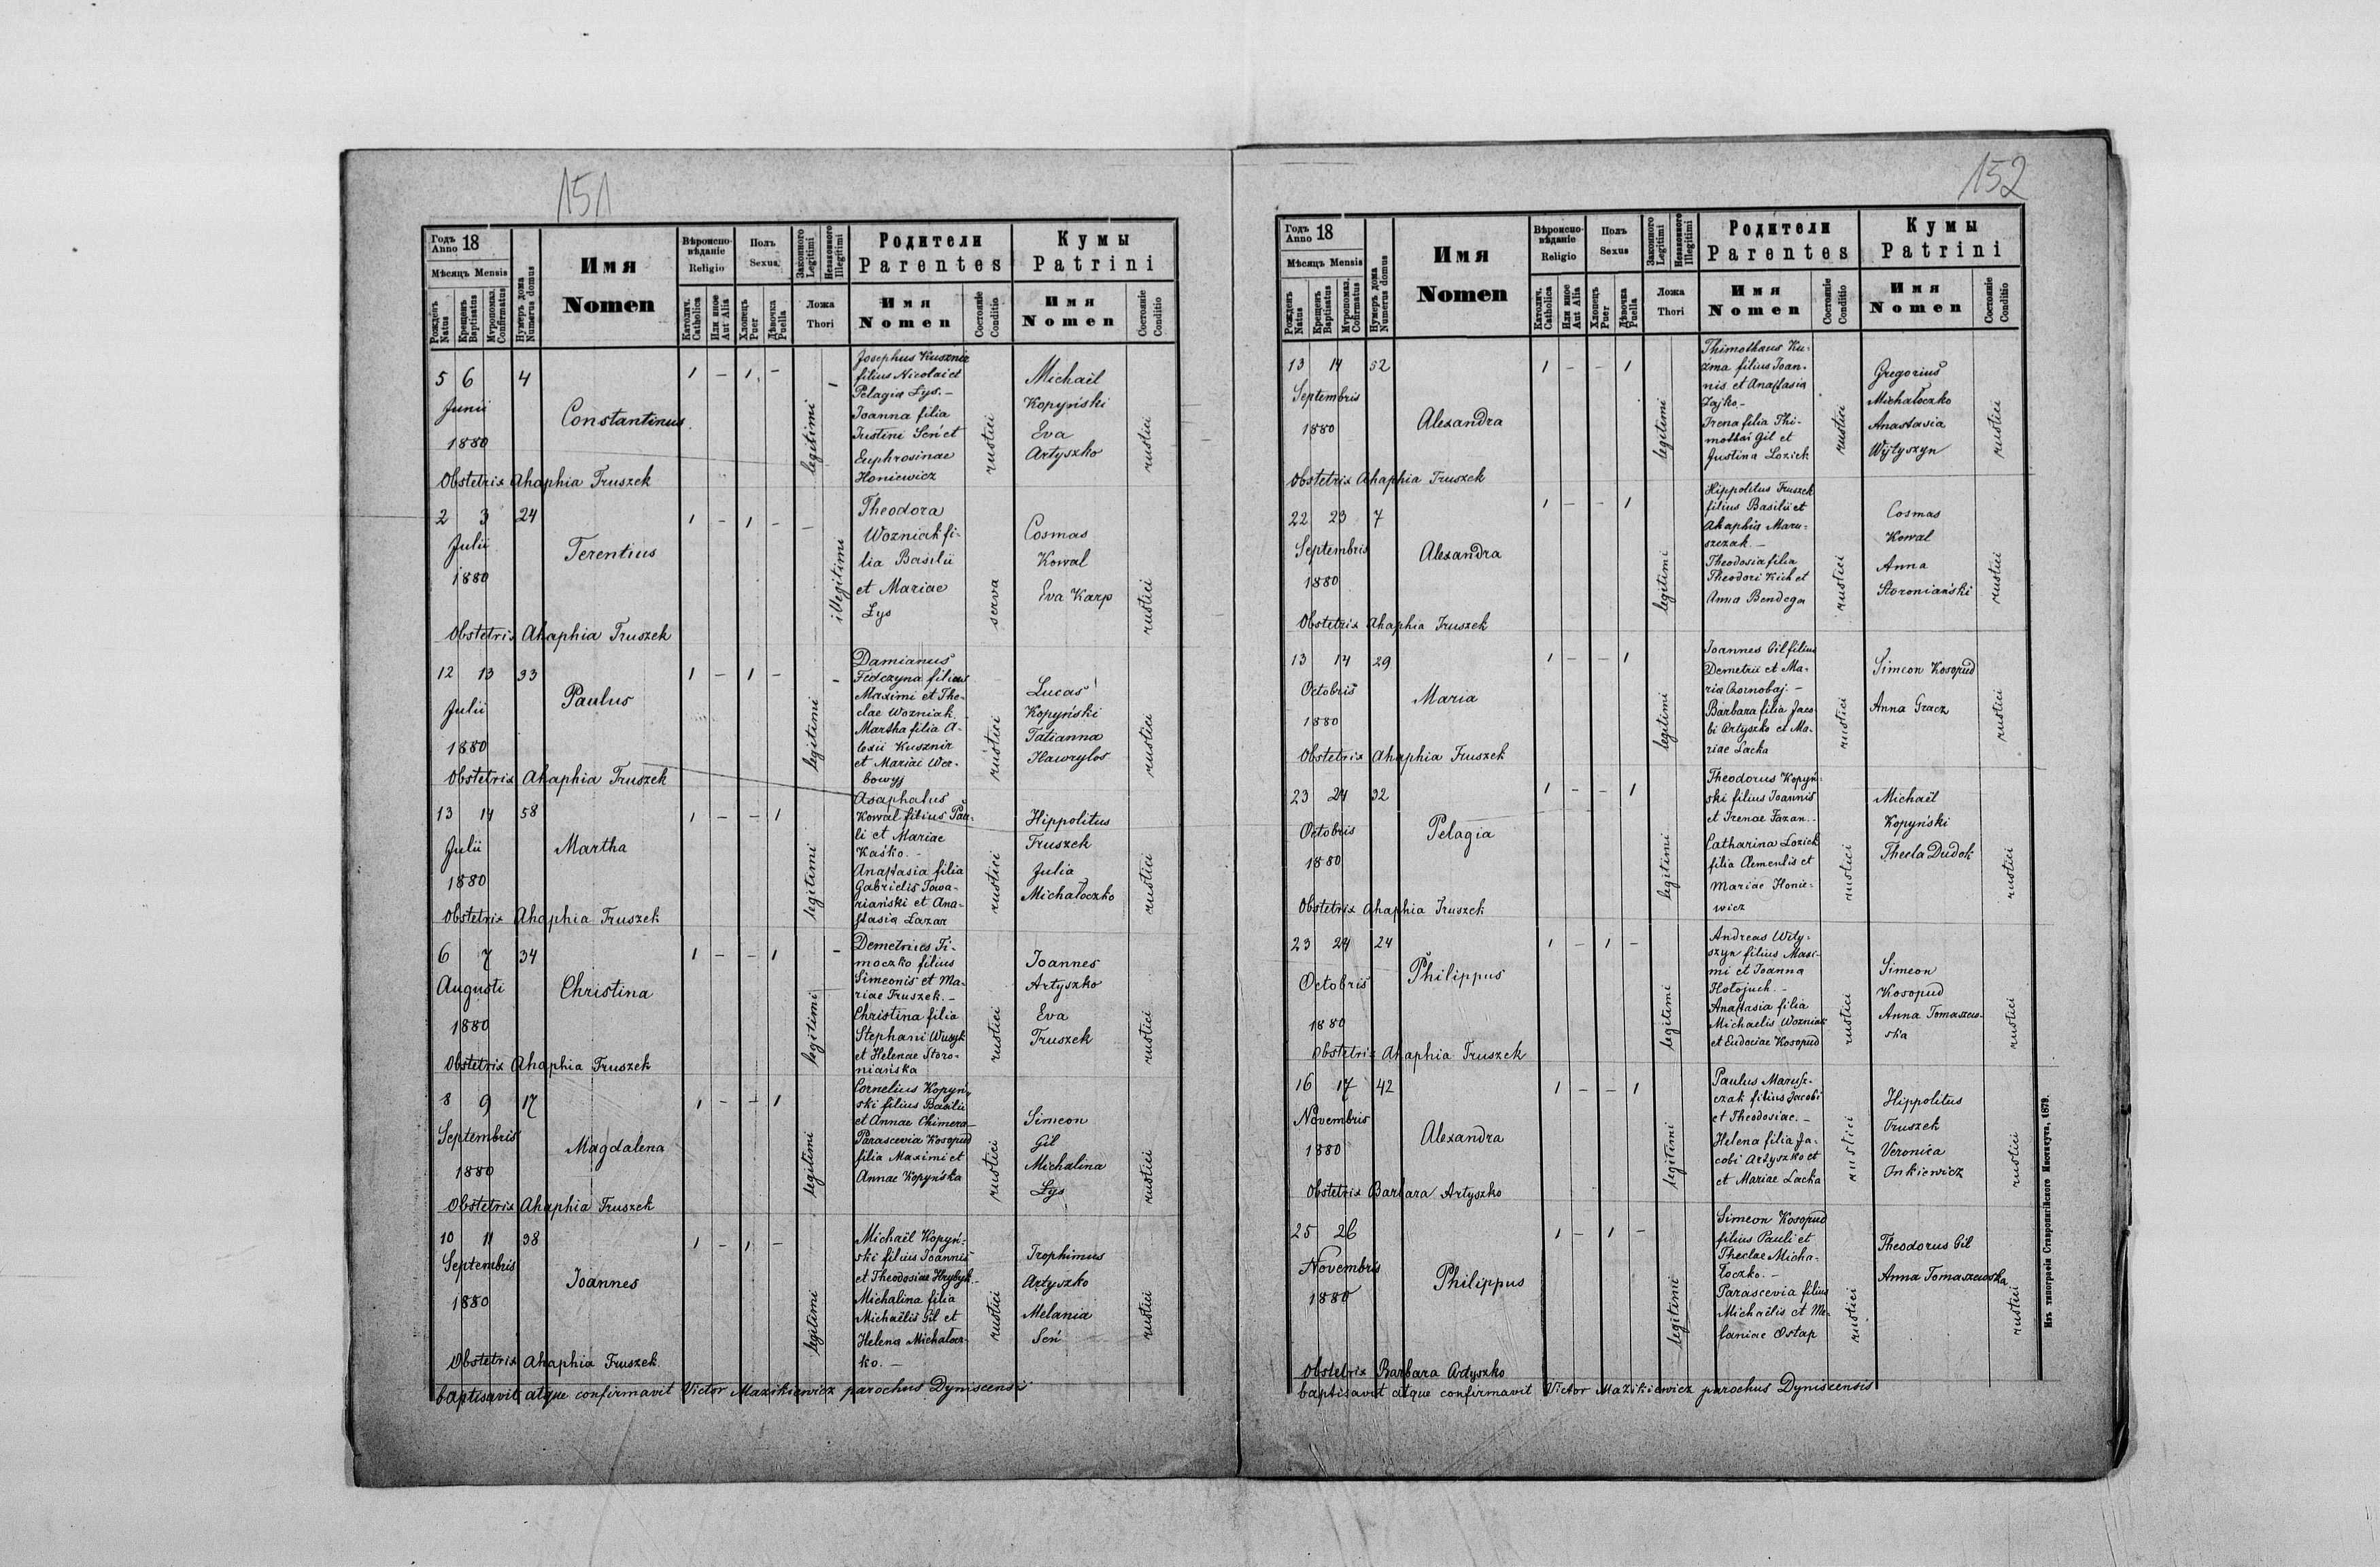 151
Годъ Anno 18
Мѣсяцъ Mensis
Рожденъ Natus
Крещенъ Baptisatus
Мѵропомаз. Confirmatus
Нумеръ дома Numerus domus
Имя
Nomen
Вѣроиспо-
вѣданіе
Religio
Католич. Catholica
Или иное Aut Alia
Полъ
Sexus
Хлопецъ Puer
Дѣвочка Puella
Законного Legitimi
Незаконного Illegitimi
Ложа
Thori
Родители
Parentes
Имя
Nomen
Состояніе Conditio
Кумы
Patrini
Имя
Nomen
Состояніе Conditio
5 6 4
Junii
1880
Constantinus
1 - 1 -
legitimi
Josephus Kusznir
filius Nicolai et
Pelagia Lys. -
Joanna filia
Justini Seń et
Euphrosinae
Honiewicz
rustici
Michaël
Kopyński
Eva
Artyszko
rustici
Obstetrix Ahaphia Truszek
2 3 24
Julii
1880
Terentius
1 - 1 - -
illegitimi
Theodora
Wozniak fi-
lia Basilii
et Mariae
Łys
serva
Cosmas
Kowal
Eva Karp
rustici
Obstetrix Ahaphia Truszek
12 13 33
Julii
1880
Paulus
1 - 1 -
legitimi
Damianus
Fedczyna filius
Maximi et The-
clae Wozniak. -
Martha filia A-
lexii Kusznir
et Mariae Wer-
bowyj
rustici
Lucas
Kopyński
Tatianna
Hawrylos
rustici
Obstetrix Ahaphia Truszek
13 14 58
Julii
1880
Martha
1 - - 1
legitimi
Asaphatus
Kowal filius Pau-
li et Mariae
Kaśko. -
Anastasia filia
Gabrielis Towa-
riański et Ana-
stasia Lazar
rustici
Hippolitus
Truszek
Julia
Michałoczko
rustici
Obstetrix Ahaphia Truszek
6 7 34
Augusti
1880
Christina
1 - - 1 -
legitimi
Demetrius Ti-
moczko filius
Simeonis et Ma-
riae Truszek. -
Christina filia
Stephani Wusyk
et Helenae Storo-
niańska
rustici
Joannes
Artyszko
Eva
Truszek
rustici
Obstetrix Ahaphia Truszek
8 9 17
Septembris
1880
Magdalena
1 - - 1
legitimi
Cornelius Kopyń-
ski filius Basilii
et Annae Chimera -
Parascevia Kosopud
filia Maximi et
Annae Kopyńska
rustici
Simeon
Gil
Michalina
Łys
rustici
Obstetrix Ahaphia Truszek
10 11 38
Septembris
1880
Joannes
1 - 1 -
legitimi
Michaël Kopyń-
ski filius Joannis
et Theodosiae Hrybyk. -
Michalina filia
Michaëlis Gil et
Helena Michałocz-
ko. -
rustici
Trophimus
Artyszko
Melania
Seń
rustici
Obstetrix Ahaphia Truszek
baptisavit atque confirmavit Victor Mazikiewicz parochus Dyniscensis
152
Годъ Anno 18
Мѣсяцъ Mensis
Рожденъ Natus
Крещенъ Baptisatus
Мѵропомаз. Confirmatus
Нумеръ дома Numerus domus
Имя
Nomen
Вѣроиспо-
вѣданіе
Religio
Католич. Catholica
Или иное Aut Alia
Полъ
Sexus
Хлопецъ Puer
Дѣвочка Puella
Законного Legitimi
Незаконного Illegitimi
Ложа
Thori
Родители
Parentes
Имя
Nomen
Состояніе Conditio
Кумы
Patrini
Имя
Nomen
Состояніе Conditio
13 14 52
Septembris
1880
Alexandra
1 - - 1
legitimi
Thimothaus Ku-
źma filius Joan-
nis et Anastasia
Zajko. -
Irena filia Thi-
mothai Gil et
Justina Lozick
rustici
Gregorius
Michałoczko
Anastasia
Wytyszyn
rustici
Obstetrix Ahaphia Truszek
22 23 7
Septembris
1880
Alexandra
1 - - 1
legitimi
Hippolitus Truszek
filius Basilii et
Ahaphia Maru-
szczak. -
Theodosia filia
Theodori Kich et
Anna Bendega
rustici
Cosmas
Kowal
Anna
Storoniański
rustici
Obstetrix Ahaphia Truszek
13 14 29
Octobris
1880
Maria
1 - - 1
legitimi
Joannes Gil filius
Demetrii et Ma-
ria Czornobaj. -
Barbara filia Jaco-
bi Artyszko et Ma-
riae Lacka
rustici
Simeon Kosopud
Anna Gracz
rustici
Obstetrix Ahaphia Truszek
23 24 32
Octobris
1880
Pelagia
1 - - 1
legitimi
Theodorus Kopyń-
ski filius Joannis
et Irenae Fazan. -
Catharina Lozick
filia Clementis et
Mariae Honie-
wicz
rustici
Michaël
Kopyński
Thecla Dudok
rustici
Obstetrix Ahaphia Truszek
23 24 24
Octobris
1880
Philippus
1 - 1 -
legitimi
Andreas Wity-
szyn filius Maxi-
mi et Joanna
Hołojuch. -
Anastasia filia
Michaelis Wozniak
et Eudociae Kosopud
rustici
Simeon
Kosopud
Anna Tomaszew-
ska
rustici
Obstetrix Ahaphia Truszek
16 17 42
Novembris
1880
Alexandra
1 - - 1
legitimi
Paulus Marusz-
czak filius Jacobi
et Theodosiae. -
Helena filia Ja-
cobi Artyszko et
et Mariae Lacka
rustici
Hippolitus
Truszek
Veronica
Inkiewicz
rustici
Obstetrix Barbara Artyszko
25 26
Novembris
1880
Philippus
1 - 1 -
legitimi
Simeon Kosopud
filius Pauli et
Theclae Micha-
łoczko. -
Parascevia filius
Michaëlis et Me-
laniae Ostap
rustici
Theodorus Gil
Anna Tomaszewska
rustici
Obstetrix Barbara Artyszko
baptisavit atque confirmavit Victor Mazikiewicz parochus Dyniscensis
Изъ типографіи Ставропигійского Института, 1879.